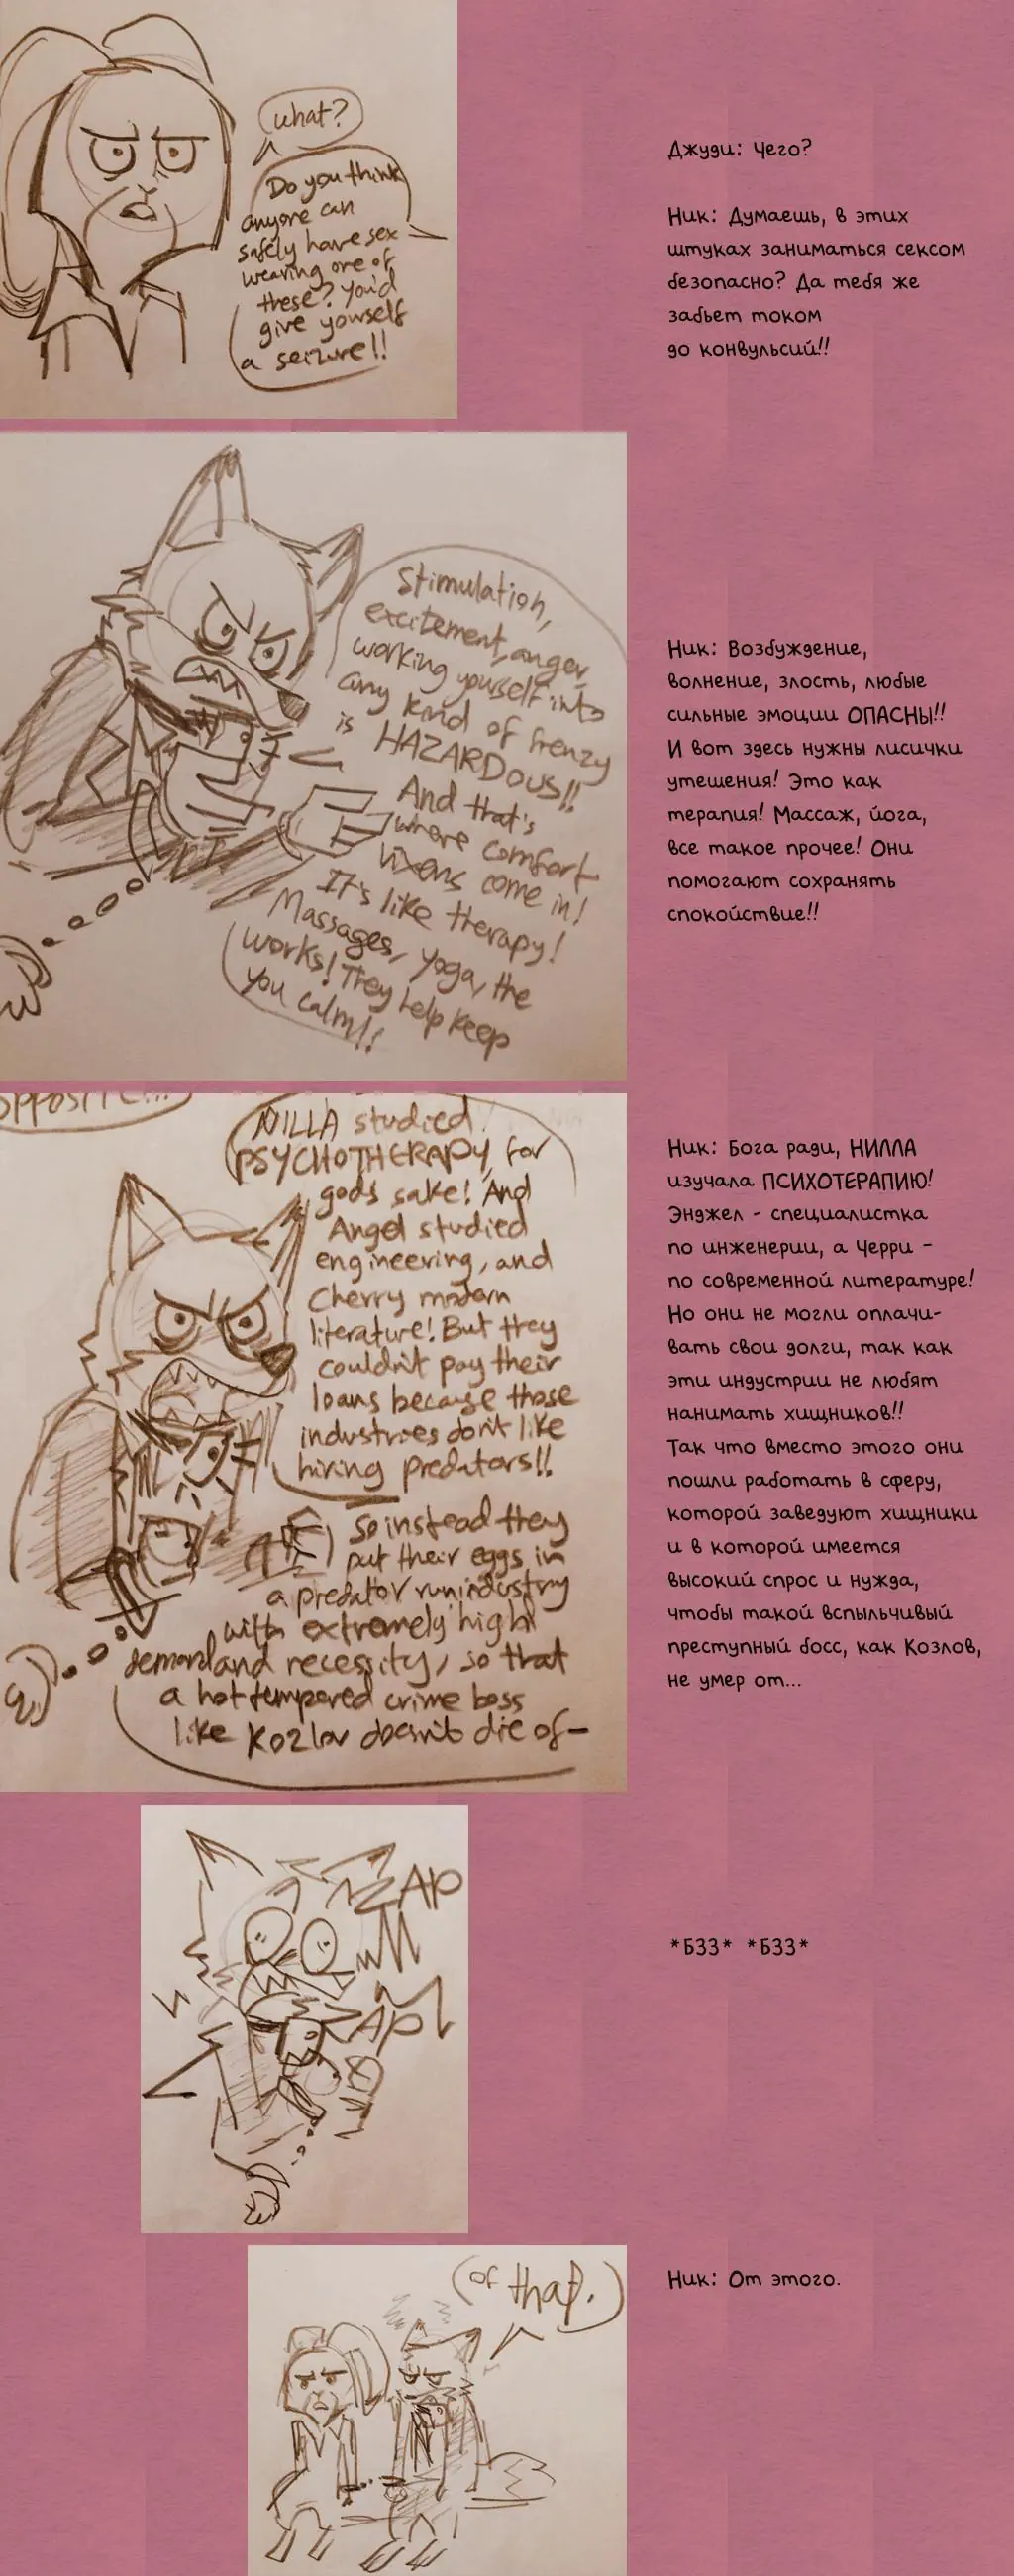 what?
Do you think
anyone can
safely have sex
wearing one of
these? You'd
give yourself
a seizure!!
Джуди: Чего?
Ник: Думаешь, в этих
штуках заниматься сексом
безопасно? Да тебя же
забьет током
до конвульсий!!
Stimulation,
excitement, anger,
working yourself into
any kind of frenzy
is HAZARDOUS!!
And that's
where comfort
vixens come in!
It's like therapy!
Massages, yoga, the
works! They help keep
you calm!!
Ник: Возбуждение,
волнение, злость, любые
сильные эмоции ОПАСНЫ!!
И вот здесь нужны лисички
утешения! Это как
терапия! Массаж, йога,
все такое прочее! Они
помогают сохранять
спокойствие!!
opposite...
NILLA studied
PSYCHOTHERAPY, for
gods sake! And
Angel studied
engineering, and
Cherry modern
literature! But they
couldn't pay their
loans because those
industries don't like
hiring predators!!
So instead they
put their eggs in
a predator run industry
with extremely high
demand and necessity, so that
a hot tempered crime boss
like Kozlov doesn't die of-
Ник: Бога ради, НИЛЛА
изучала ПСИХОТЕРАПИЮ!
Энджел - специалистка
по инженерии, а Черри -
по современной литературе!
Но они не могли оплачи-
вать свои долги, так как
эти индустрии не любят
нанимать хищников!!
Так что вместо этого они
пошли работать в сферу,
которой заведуют хищники
и в которой имеется
высокий спрос и нужда,
чтобы такой вспыльчивый
преступный босс, как Козлов,
не умер от...
ZAP
ZAP
*БЗЗ* *БЗЗ*
(of that.)
Ник: От этого.